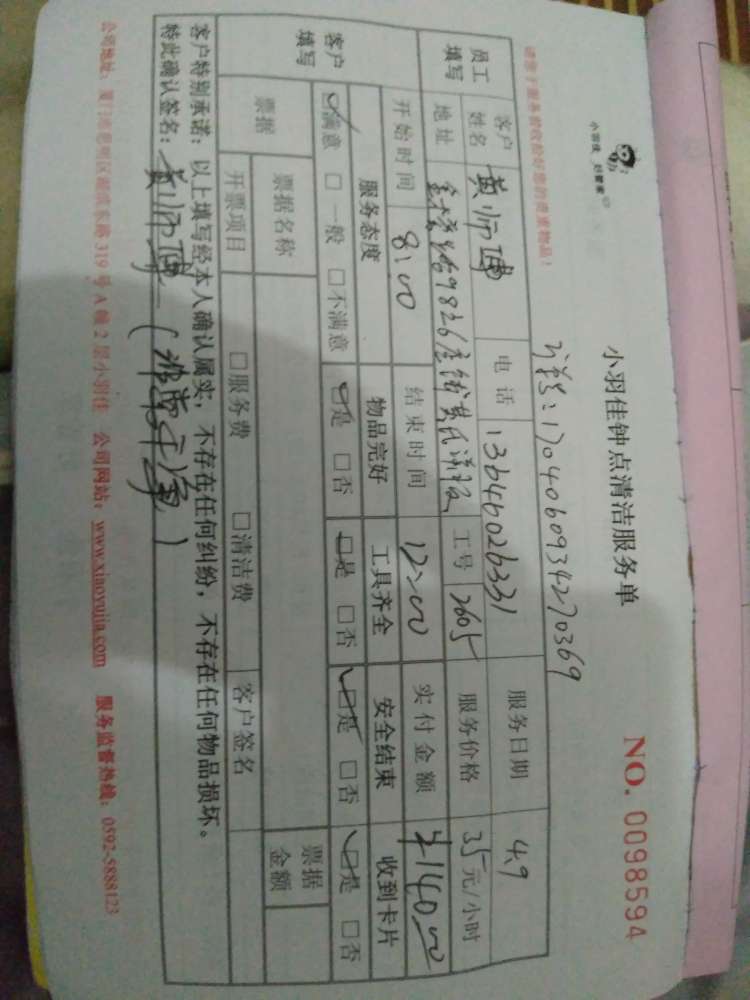 小羽佳 好管家
小羽佳钟点清洁服务单
NO. 0098594
请您于服务前收拾好您的贵重物品！
1704060934270369
员工填写
客户姓名 黄师傅 电话 13646026331 服务日期 4.9
地址 工号 2605 服务价格 35元/小时
开始时间 8:00 结束时间 12:00 实付金额 ¥140.00
客户填写
服务态度 物品完好 工具齐全 安全结束 收到卡片
☑满意 □一般 □不满意 ☑是 □否 ☑是 □否 ☑是 □否 ☑是 □否
票据 票据名称 票据金额
开票项目 □服务费 □清洁费 客户签名
客户特别承诺：以上填写经本人确认属实，不存在任何纠纷，不存在任何物品损坏。
特此确认签名：黄师傅
公司地址：厦门市思明区湖滨东路319号A幢2层小羽佳 公司网站：www.xiaoyujia.com 服务监督热线：0592-5888123